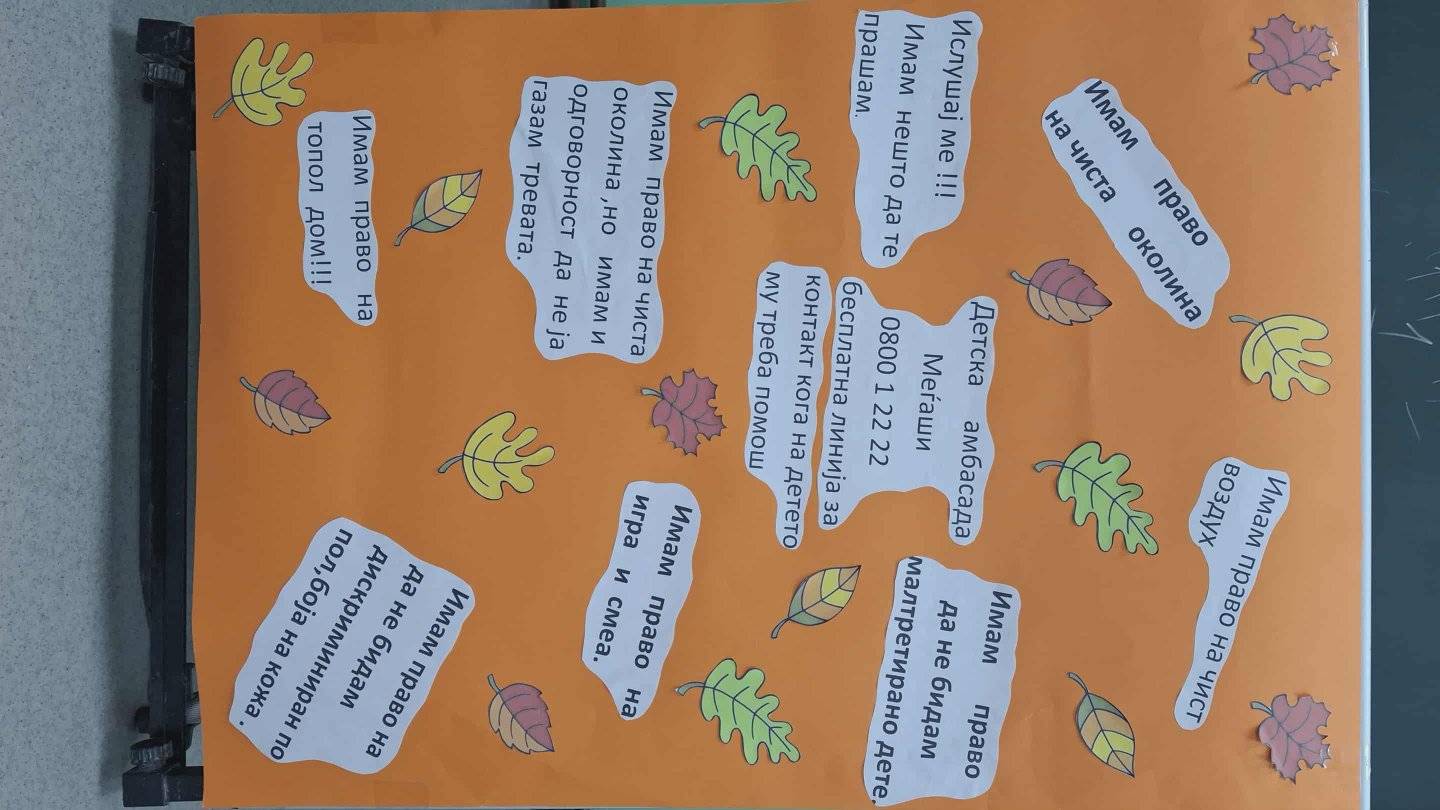 Имам право
на чиста околина
Имам право на чист
воздух
Ислушај ме !!!
Имам нешто да те
прашам.
Детска амбасада
Меѓаши
0800 1 22 22
бесплатна линија за
контакт кога на детето
му треба помош
Имам право
да не бидам
малтретирано дете.
Имам право на чиста
околина ,но имам и
одговорност да не ја
газам тревата.
Имам право на
игра и смеа.
Имам право на
топол дом!!!
Имам право на
да не бидам
дискриминиран по
пол,боја на кожа.